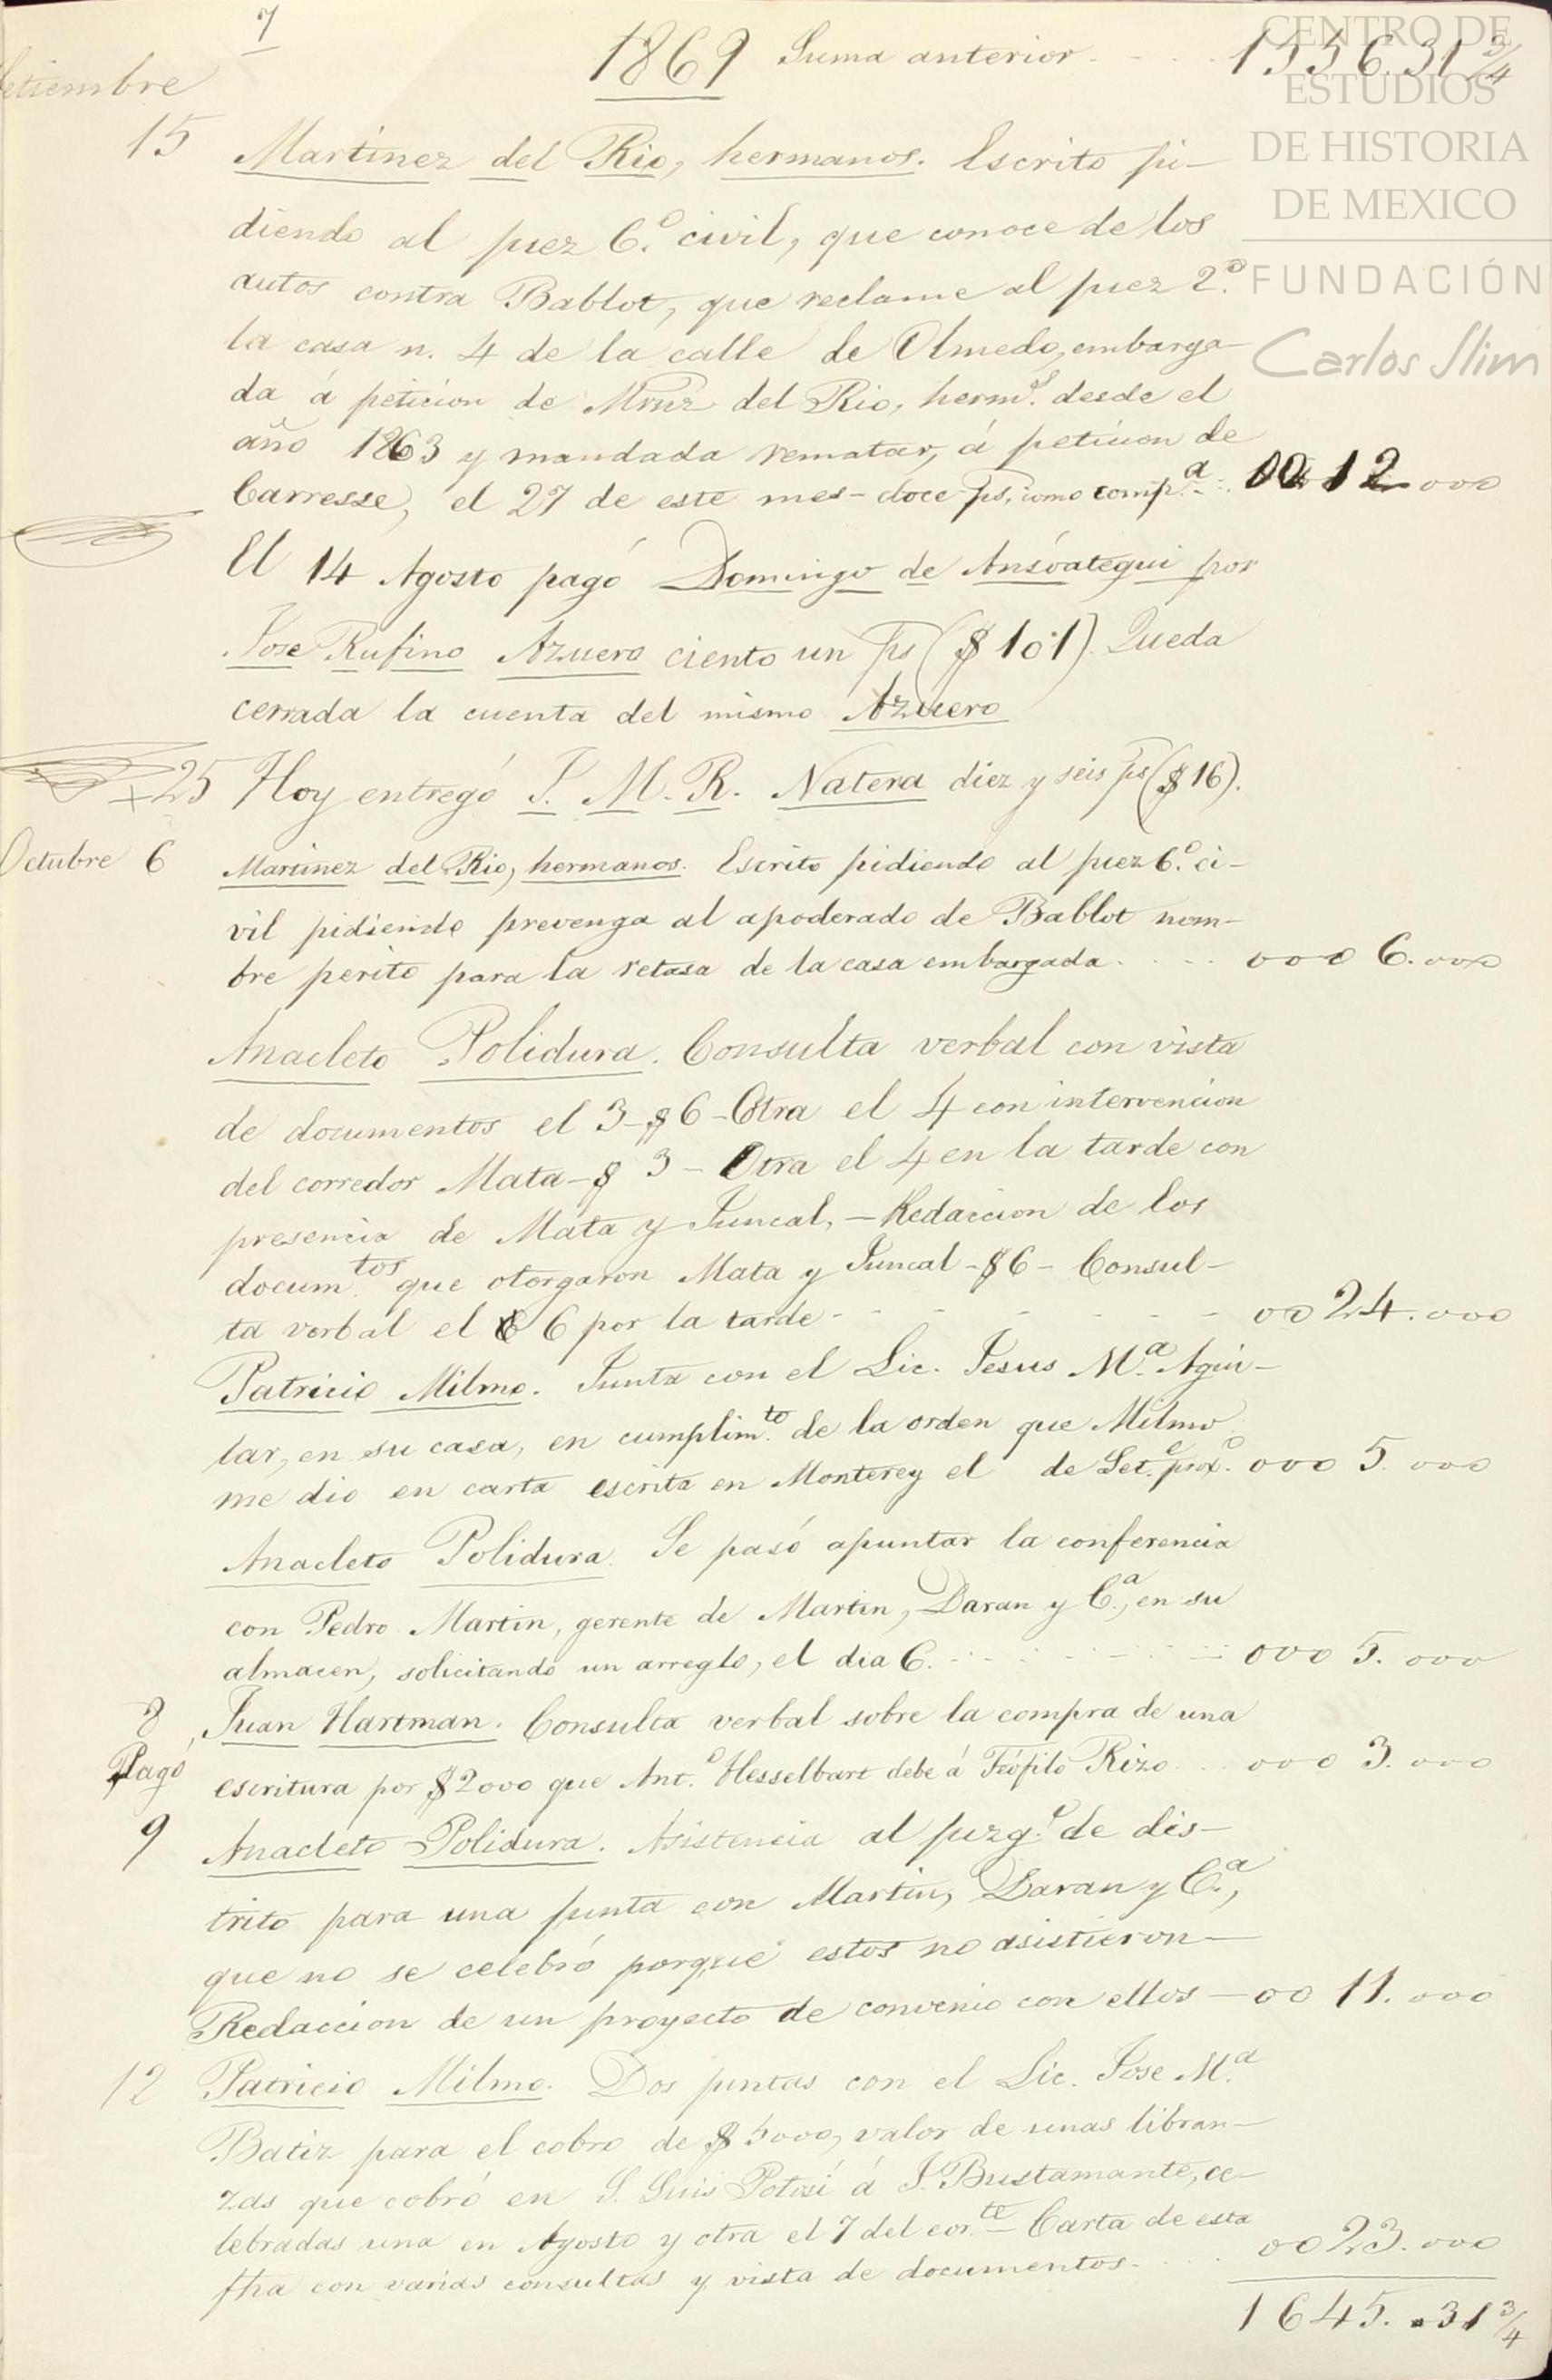 7
1869 Suma anterior 1556.31 3/4
Setiembre
15 Martinez del Rio, hermanos. Escrito pi-
diendo al juez 6.º civil, que conoce de los
autos contra Bablot, que reclame al juez 2.º
la casa n. 4 de la calle de Olmedo, embarga-
da á peticion de Mrnz del Rio, herm.s desde el
año 1863 y mandada rematar, á peticion de
Carresse, el 27 de este mes - doce ps, como comp.a 00 12.000
El 14 Agosto pagó Domingo de Ansóategui por
Jose Rufino Azuero ciento un ps ($101). Queda
cerrada la cuenta del mismo Azuero
25 Hoy entregó J. M. R. Natera diez y seis ps ($16).
Octubre 6 Martinez del Rio, hermanos. Escrito pidiendo al juez 6.º ci-
vil pidiendo prevenga al apoderado de Bablot nom-
bre perito para la retasa de la casa embargada 000 6.000
Anacleto Polidura. Consulta verbal con vista
de documentos el 3 - $6 - Otra el 4 con intervencion
del corredor Mata - $3 - Otra el 4 en la tarde con
presencia de Mata y Juncal, - Redaccion de los
docum.tos que otorgaron Mata y Juncal - $6 - Consul-
ta verbal el 6 por la tarde 00 24.000
Patricio Milmo. Junta con el Lic. Jesus M.a Agui-
lar, en su casa, en cumplim.to de la orden que Milmo
me dio en carta escrita en Monterey el de Set.e prox.o 000 5.000
Anacleto Polidura. Se pasó apuntar la conferencia
con Pedro Martin, gerente de Martin, Daran y C.a, en su
almacen, solicitando un arreglo, el dia 6. 000 5.000
8 Juan Hartman. Consulta verbal sobre la compra de una
Pagó escritura por $2000 que Ant.o Hesselbart debe á Teófilo Rizo 000 3.000
9 Anacleto Polidura. Asistencia al juzg.o de dis-
trito para una junta con Martin, Daran y C.a,
que no se celebró porque estos no asistieron -
Redaccion de un proyecto de convenio con ellos - 00 11.000
12 Patricio Milmo. Dos juntas con el Lic. Jose M.a
Batiz para el cobro de $5000, valor de unas libran-
zas que cobró en S. Luis Potosí á J. Bustamante, ce-
lebradas una en Agosto y otra el 7 del cor.te - Carta de esta
fha con varias consultas y vista de documentos. 00 23.000
1645.31 3/4
CENTRO DE
ESTUDIOS
DE HISTORIA
DE MEXICO
FUNDACIÓN
Carlos Slim